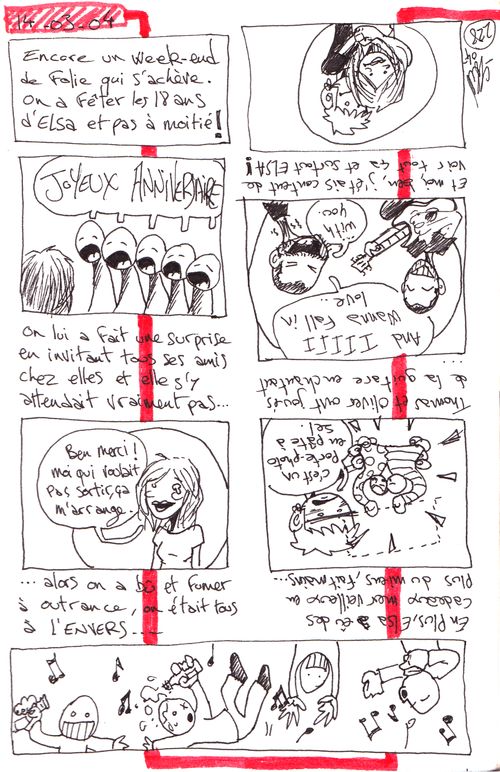 14-03-04
Encore un week-end
de Folie qui s'achève.
On a fêter les 18 ans
d'ELSA et pas à moitié!
JOYEUX ANNIVERSAIRE
On lui a fait une surprise
en invitant tous ses amis
chez elles et elle s'y
attendait vraiment pas...
Ben merci!
moi qui voulait
pas sortir, ça
m'arrange.
... alors on a bu et fumer
à outrance, on était tous
à L'ENVERS...
En Plus, Elsa a eu des
cadeaux merveilleux en
Plus du miens, fait mains...
c'est un
porte-photo
en pâte à
sel.
Thomas et Oliver ont joués
de la guitare en chantant
...
And
IIIII
Wanna Fall in
love...
with
you
Et moi, ben, j'étais content de
voir tout ça et surtout ELSA!
228